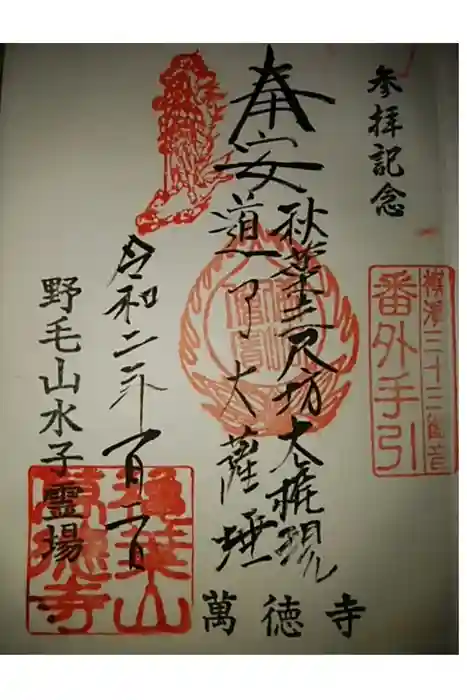 参拝記念
横濱三十三観音
番外手引
奉安
秋葉三尺坊大権現
道一了大薩埵
令和二年一月二日
野毛山水子霊場
萬徳寺
萬徳寺